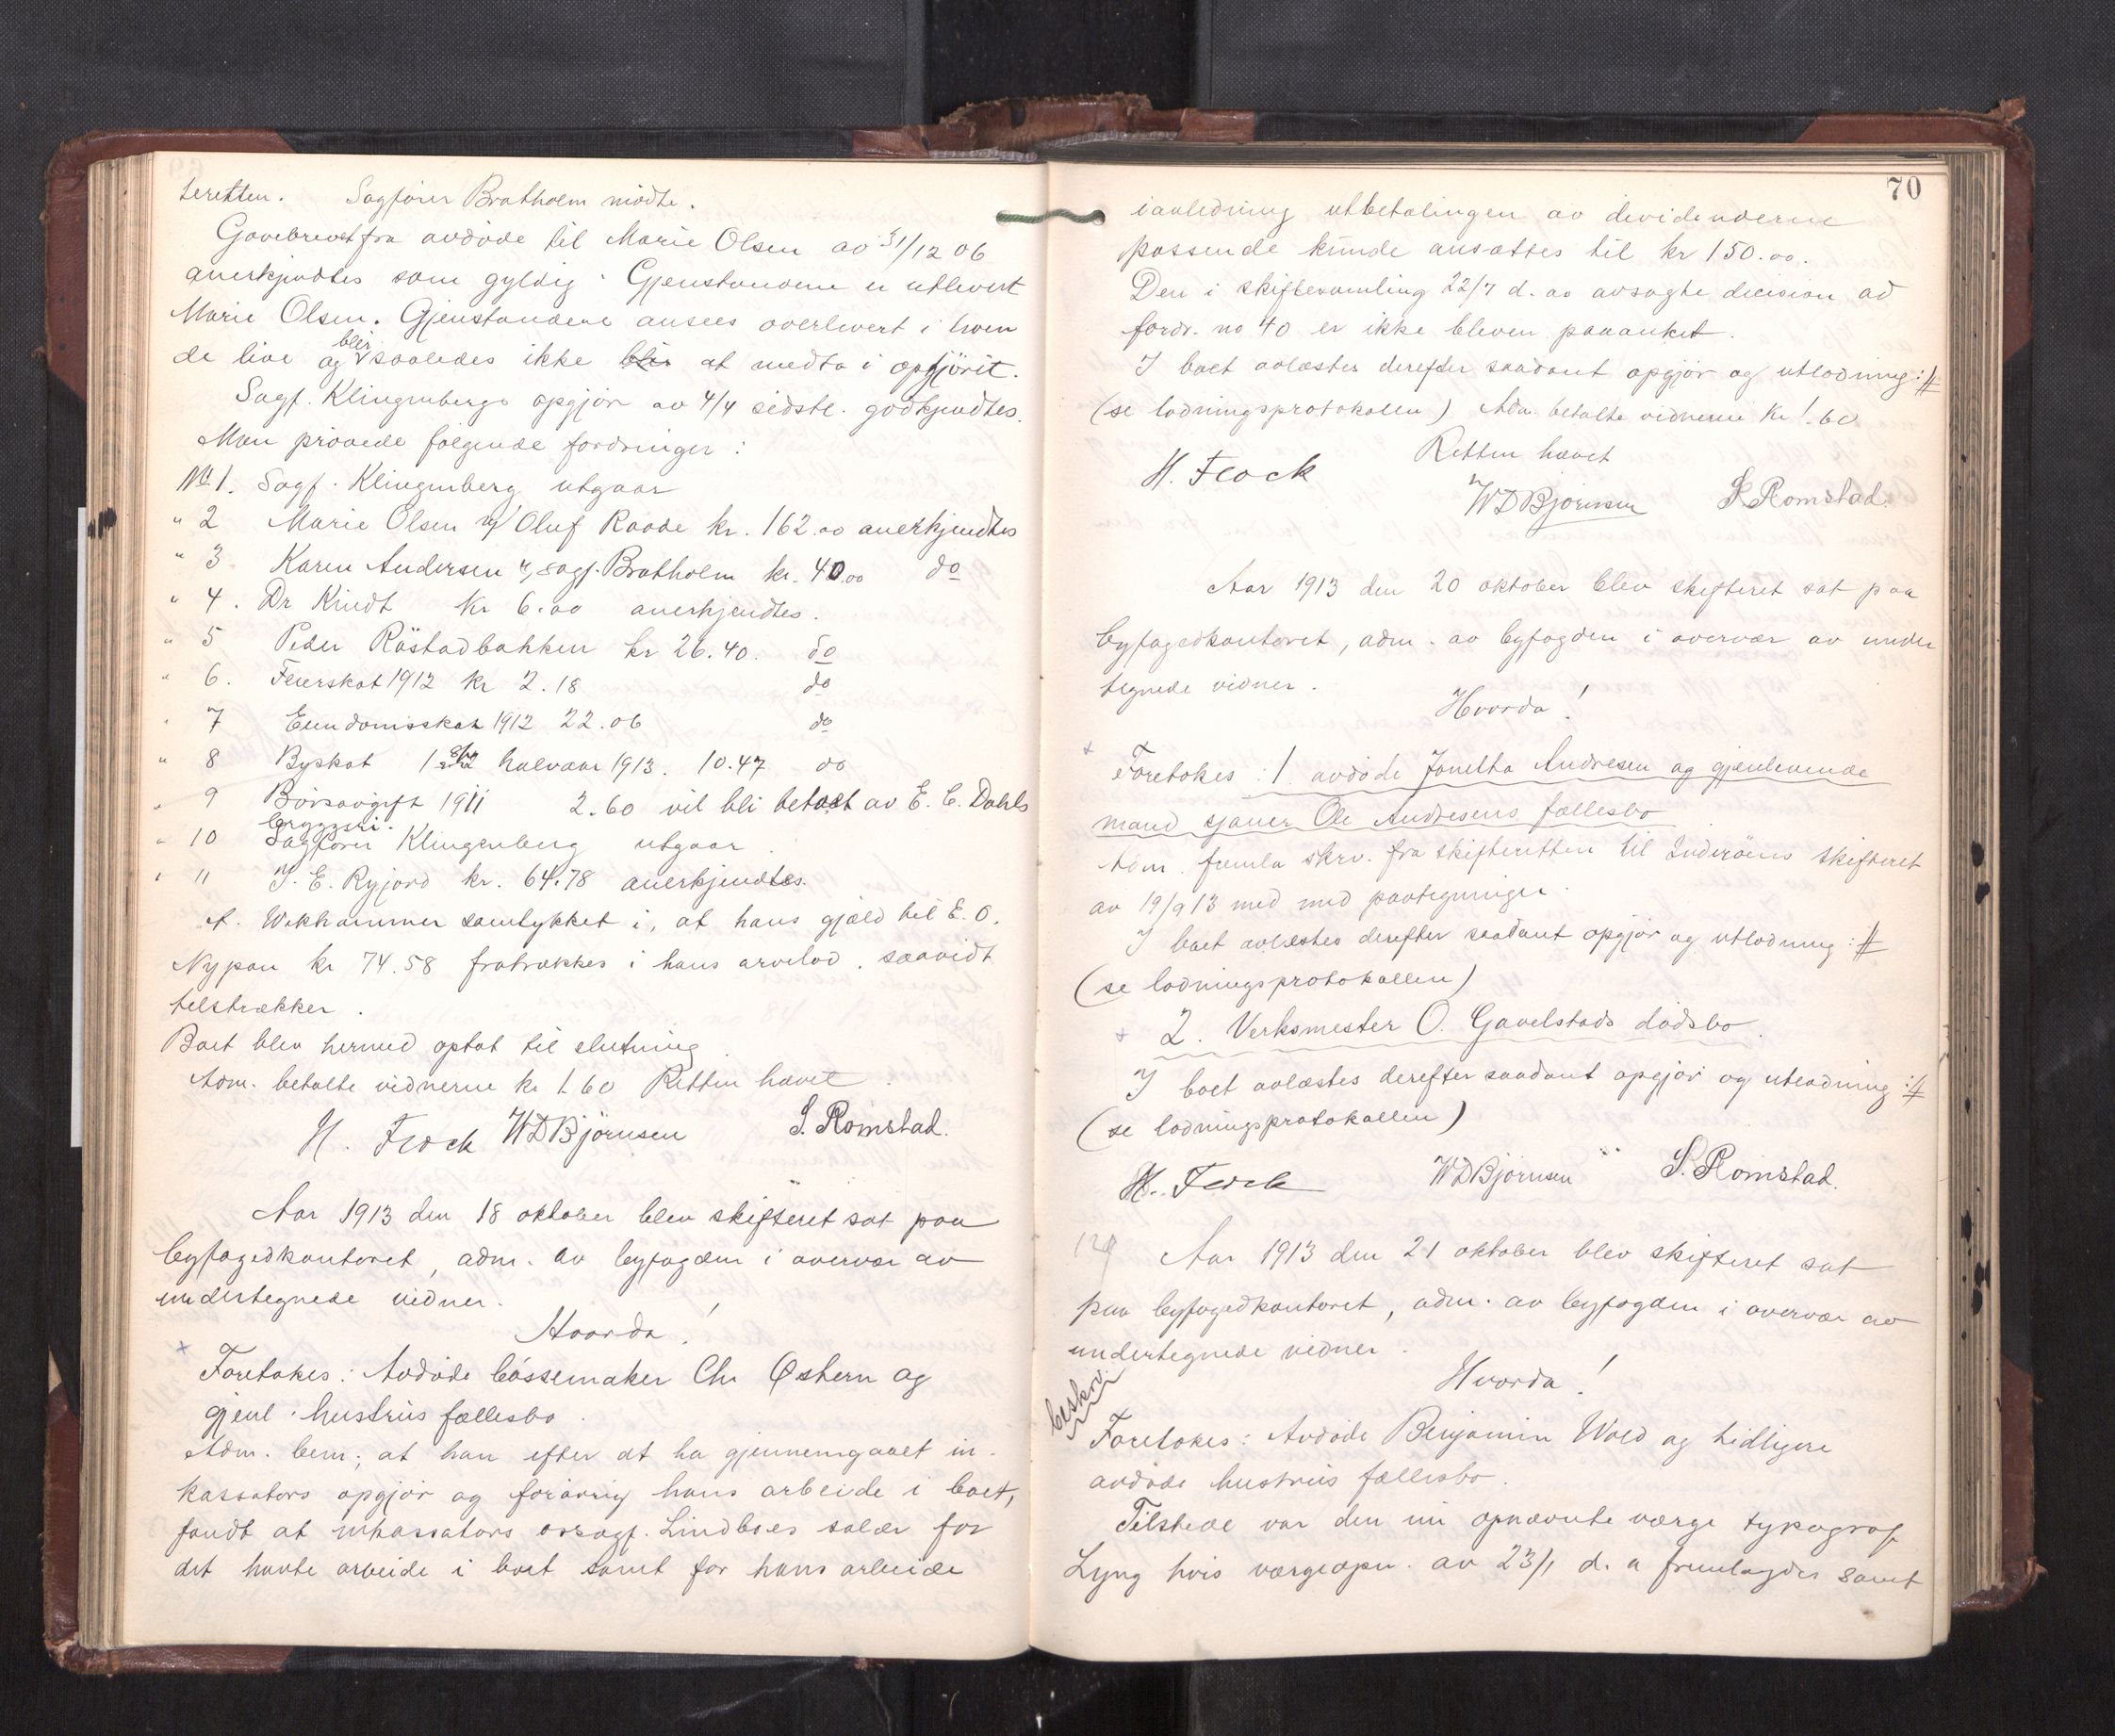 teretten. Sagfører Bratholm mødte.
Gavebrevet fra avdøde til Marie Olsen av 31/12 06
anerkjendtes som gyldig. Gjenstandene er utlevert
Marie Olsen. Gjenstandene ansees overlevert i leven
de live og blir saaledes ikke at medta i opgjöret.
Sagf. Klingenbergs opgjör av 4/4 sidstl. godkjendtes.
Man prövede følgende fordringer:
No 1. Sagf. Klingenberg utgaar
" 2 Marie Olsen v/ Oluf Raade kr. 162.00 anerkjendtes
" 3 Karen Andersen v, sagf. Bratholm kr. 40.00 do
" 4. Dr Kindt kr 6.00 anerkjendtes.
" 5 Peder Råstadbakken kr 26.40. do
" 6. Feierskat 1912 kr 2.18 do
" 7 Eiendomsskat 1912 22.06 do
" 8 Byskat 1ste halvaar 1913. 10.47 do
" 9 Börsavgift 1911 2.60 vil bli betalt av E. C. Dahls
bryggeri.
" 10 Sagfører Klingenberg utgaar.
" 11 J. E. Ryjord kr. 64.78 anerkjendtes.
A. Wekhammer samtykket i, at hans gjæld til E. O.
Nypan kr 74.58 fratrækkes i hans arvelod, saavidt
tilstrækker.
Boet blev hermed optat til slutning
Adm. betalte vidnerne kr 1.60 Retten hævet.
H. Flock WDBjörnsen S. Romstad.
Aar 1913 den 18 oktober blev skifteret sat paa
byfogedkontoret, adm. av byfogden i overvær av
undertegnede vidner.
Hvorda!
x
Foretokes: Avdøde bøssemaker Chr Østern og
gjenl. hustrus fællesbo.
Adm. bem., at han efter at ha gjennemgaaet in-
kassators opgjør og forøvrig hans arbeide i boet,
fandt at inkassators orsagf. Lindboes salær for
det havte arbeide i boet samt for hans arbeide
70
ianledning utbetalingen av dividenderne
passende kunde ansættes til kr 150.00.
Den i skiftesamling 22/7 d. aa avsagte decision ad
fordr. no 40 er ikke bleven paaanket.
I boet avlæstes derefter saadant opgjør og utlodning: #
(se lodningsprotokollen) Adm. betalte vidnerne kr 1.60
Retten hævet
H. Flock WDBjörnsen S. Romstad.
Aar 1913 den 20 oktober blev skifteret sat paa
byfogedkontoret, adm. av byfogden i overvær av under
tegnede vidner.
Hvorda!
x
Foretokes: 1. avdøde Jonetta Andresen og gjenlevende
mand sjauer Ole Andresens fællesbo
Adm. fremla skrv. fra skifteretten til Inderøens skifteret
av 19/9 13 med med paategninger.
I boet avlæstes derefter saadant opgjør og utlodning: #
(se lodningsprotokollen)
x 2. Verksmester O. Gavelstads dødsbo.
I boet avlæstes derefter saadant opgjør og utlodning: #
(se lodningsprotokollen)
H. Flock WDBjörnsen S. Romstad.
Aar 1913 den 21 oktober blev skifteret sat
paa byfogedkontoret, adm. av byfogden i overvær av
undertegnede vidner.
Hvorda!
beskrv.
Foretokes: Avdøde Benjamin Wold og tidligere
avdøde hustrus fællesbo.
Tilstede var den nu opnævnte værge typograf
Lyng hvis værgeopn. av 23/1 d. a fremlagdes samt